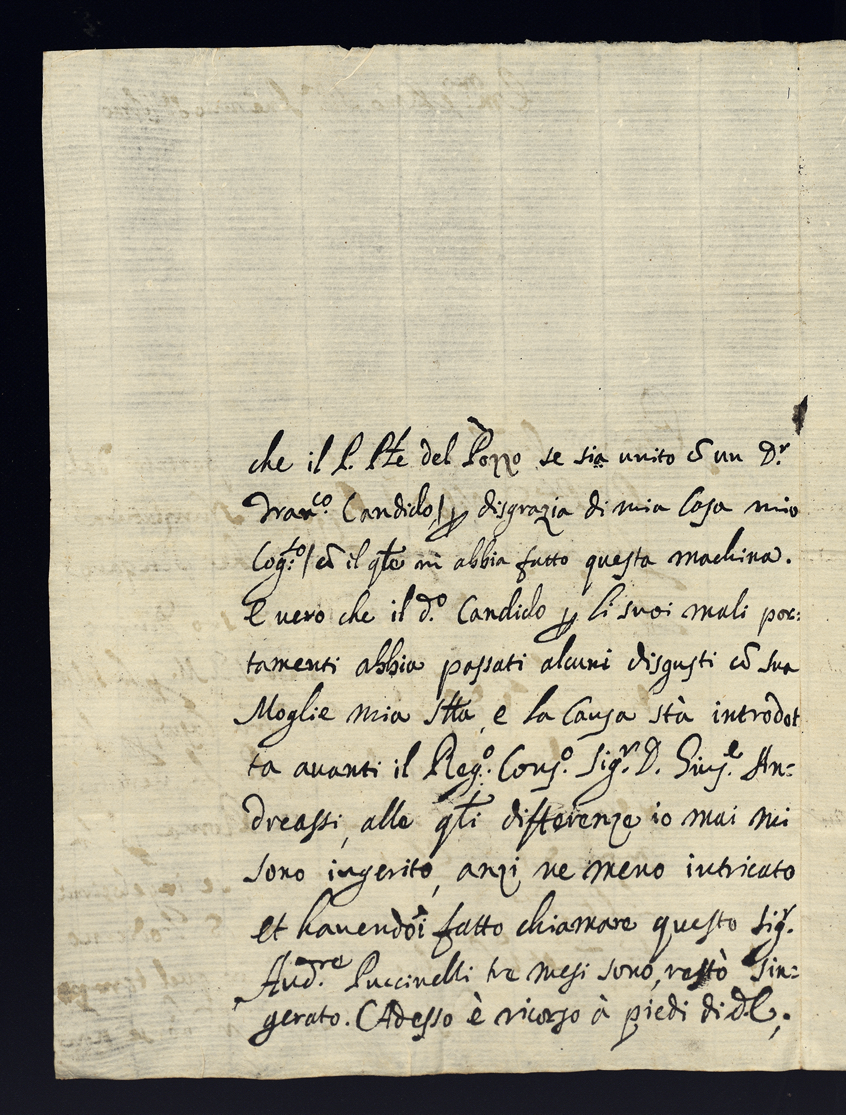 che il P. Pte del Pozzo se sia unito cō un D.r
Fran.co Candido/ ꝑ disgrazia di mia Casa mio
Cog.to/ cō il qle m̄ abbia fatto questa machina.
E vero che il d.o Candido ꝑ li suoi mali por:
tamenti abbia passati alcuni disgusti cō sua
Moglie mia stta, e la Causa stà introdot
ta avanti il Reg.o Cons.o Sig.r D. Gius.e An:
dreassi, alle qli differenze io mai mi
sono ingerito, anzi ne meno intricato
et havendoi fatto chiamare questo Sig.r
Aud.re Puccinelli tre mesi sono, restò sin:
gerato. Adesso è ricorso à piedi di